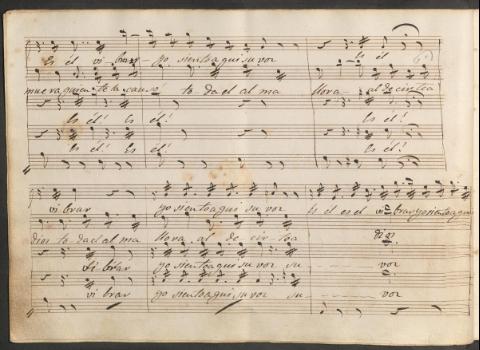 Es él vi-brar- yo siento aqui su voz él
muera quien te la causó toda el alma llora al decirte a
Es él! Es él! Es él!
Es él! Es él! Es él!
vibrar yo siento aqui su voz Es él es el vibrar yo siento aqui
dios toda el alma llora al decirtea Dios.
vibrar yo siento aqui su voz su voz
vibrar yo siento aqui su voz su voz